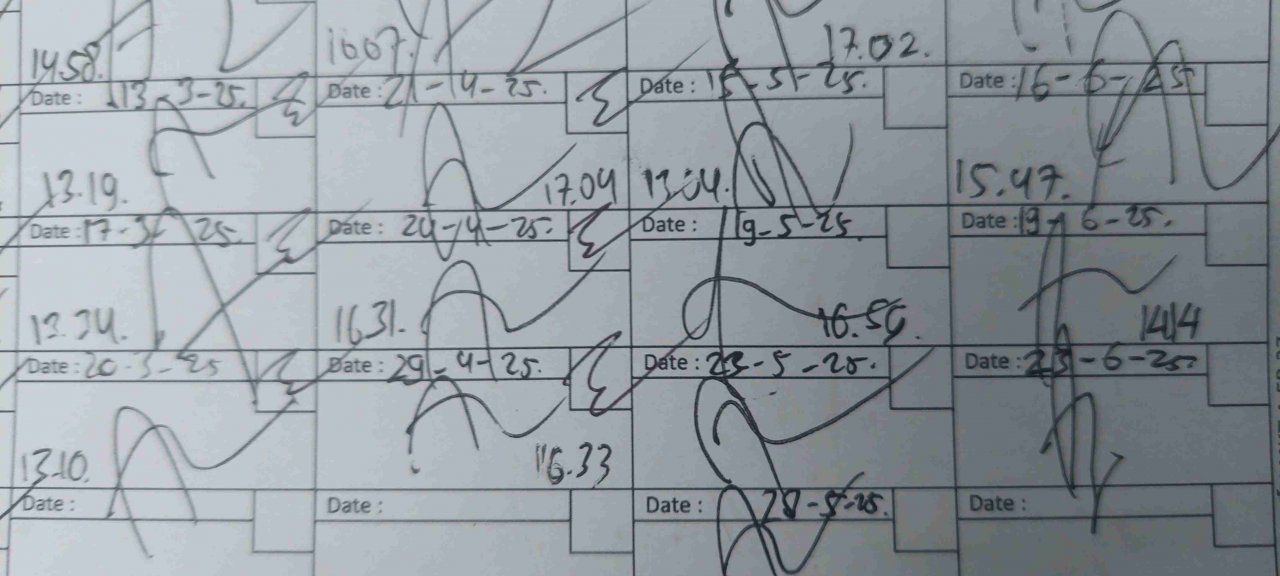 14.58. 16.07. 17.02.
Date : 13-3-25. Date : 21-4-25. Date : 15-5-25. Date : 16-6-25
13.19. 17.04 13.04. 15.47.
Date : 17-3-25. Date : 24-4-25. Date : 19-5-25. Date : 19-6-25.
13.34. 16.31. 1414
Date : 20-3-25 Date : 29-4-25. Date : 23-5-25. Date : 23-6-25.
13.10. 16.33
Date : Date : Date : 28-5-25. Date :